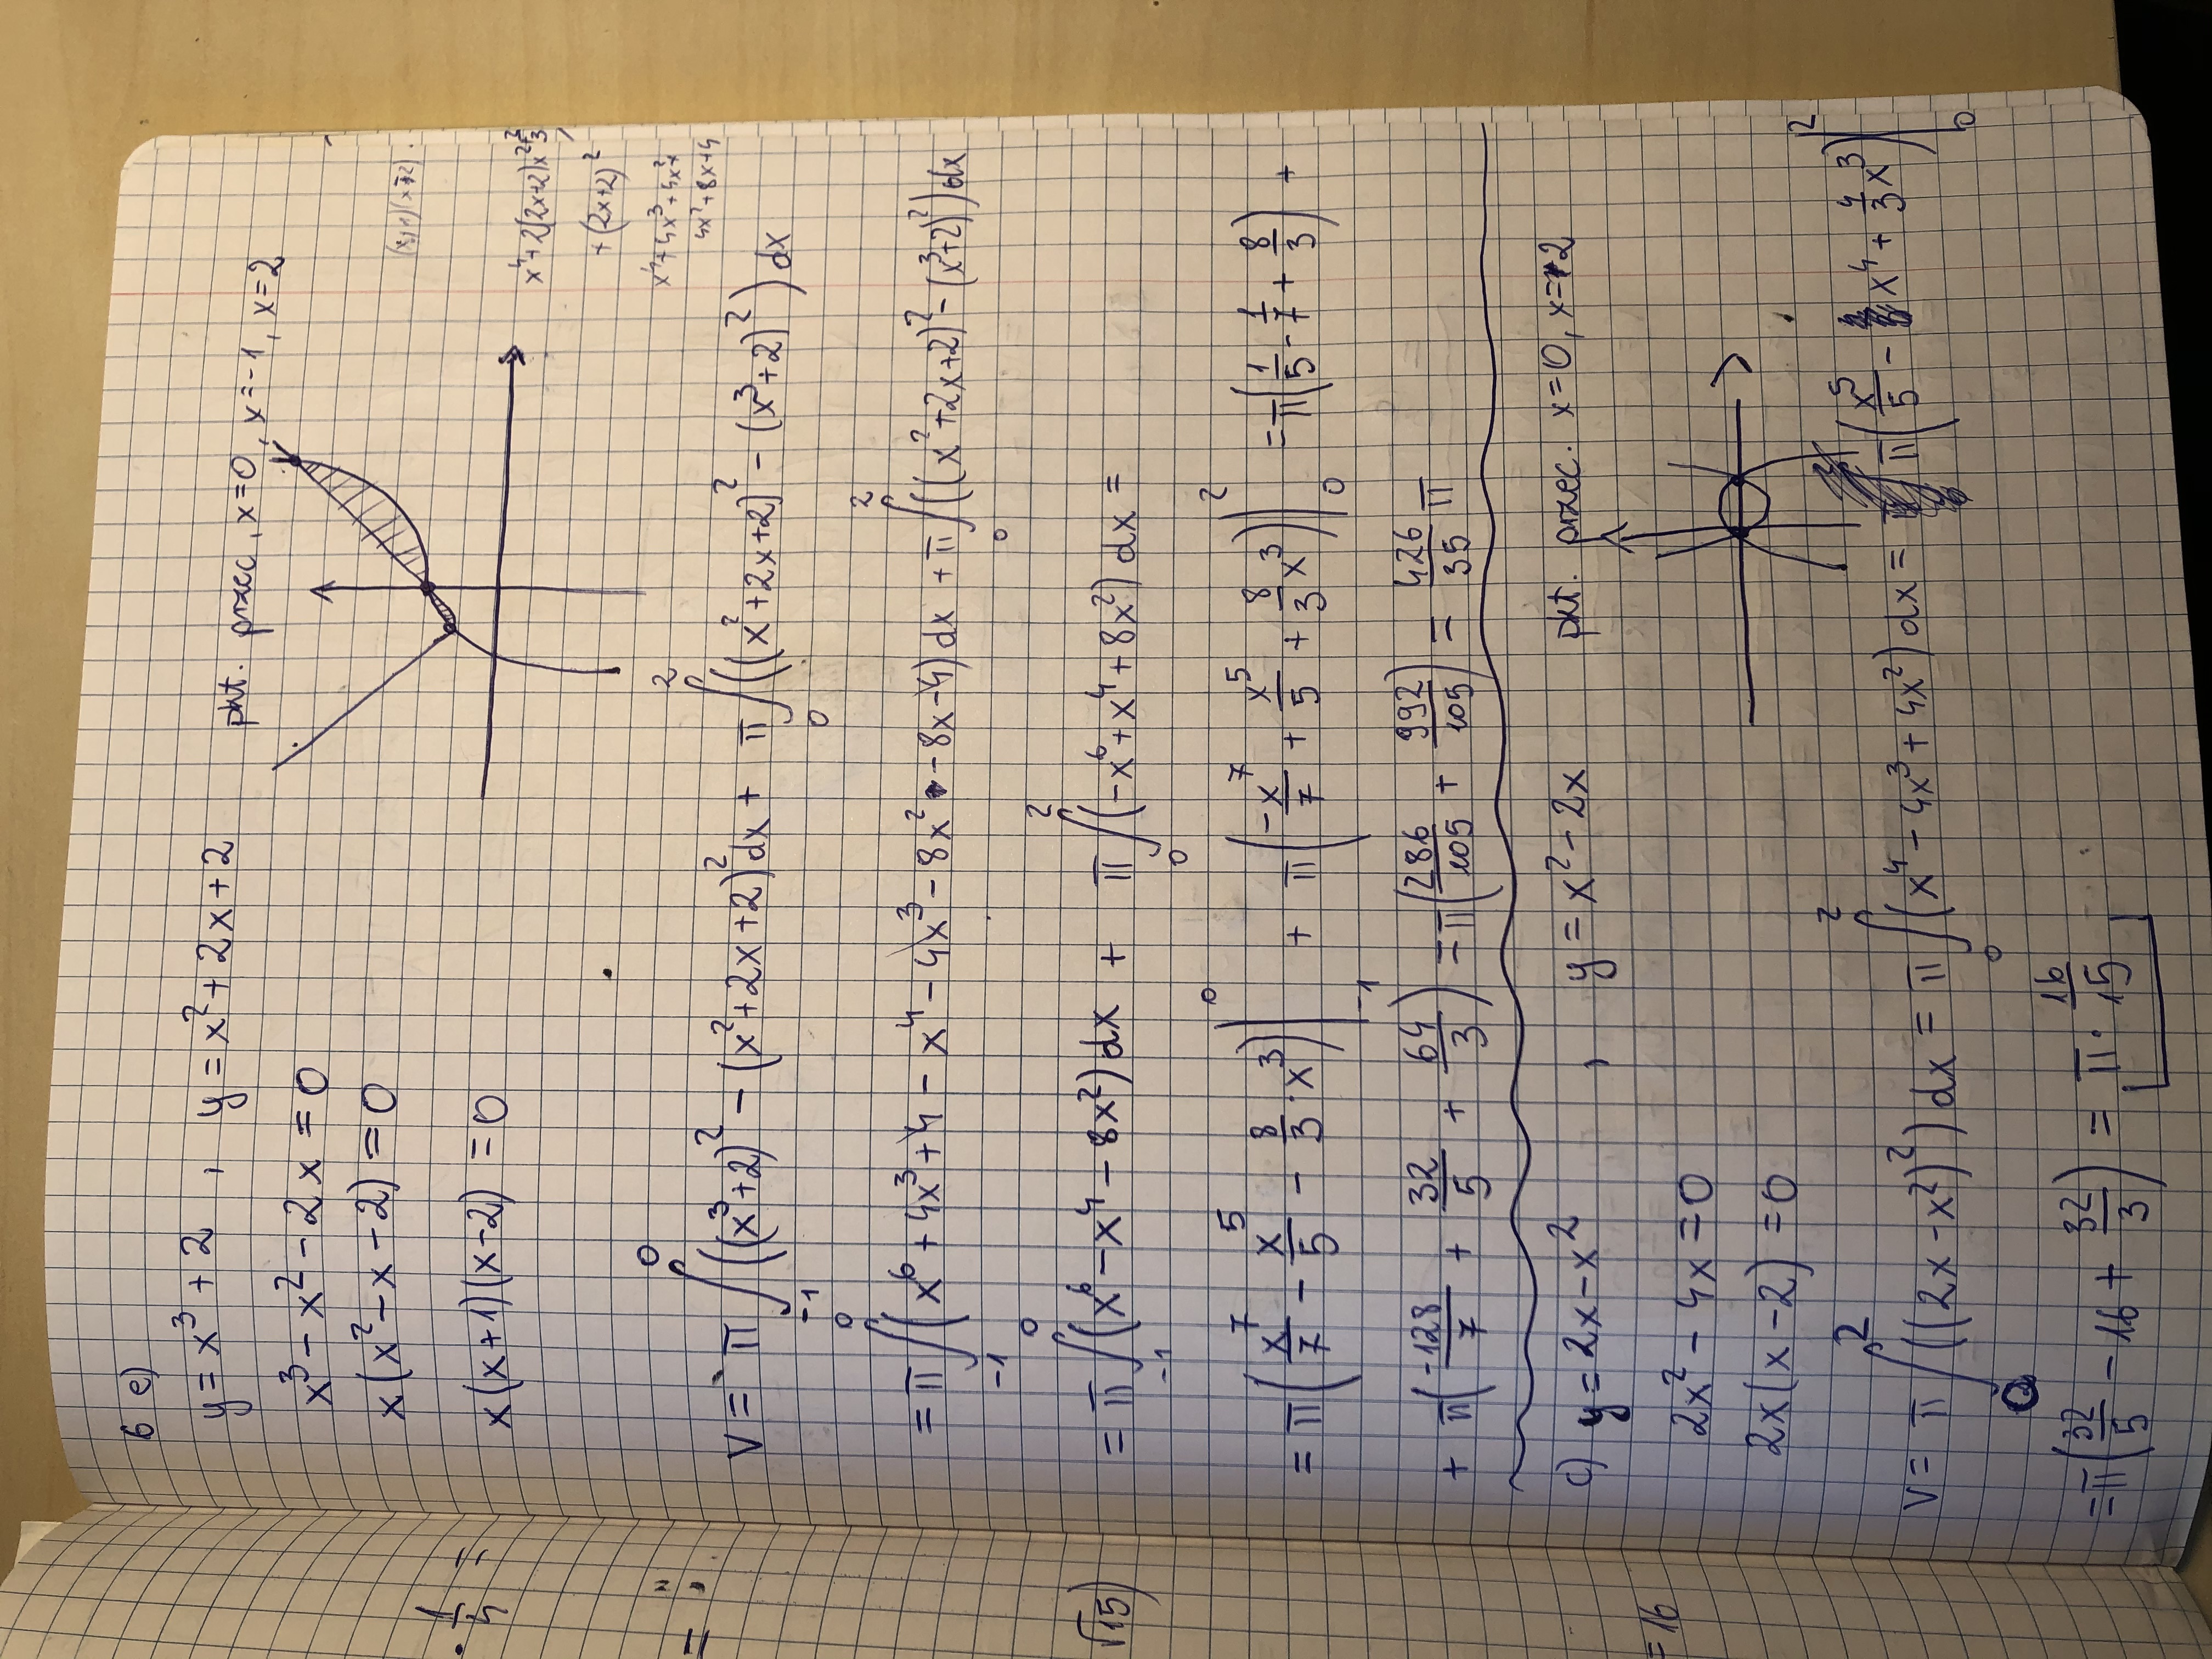 6 e)
y = x³ + 2 , y = x² + 2x + 2
pkt. przec, x=0, x=-1, x=2
x³ - x² - 2x = 0
x(x² - x - 2) = 0
x(x+1)(x-2) = 0
x⁴+2(2x+2)x²+
+(2x+2)²
x⁴+4x³+4x²+
4x²+8x+4
V = π ∫₋₁⁰ ((x³+2)² - (x²+2x+2)² dx + π ∫₀² ((x²+2x+2)² - (x³+2)²) dx
= π ∫₋₁⁰ (x⁶ + 4x³ + 4 - x⁴ - 4x³ - 8x² - 8x - 4) dx + π ∫₀² ((x²+2x+2)² - (x³+2)²) dx
= π ∫₋₁⁰ (x⁶ - x⁴ - 8x²) dx + π ∫₀² (-x⁶ + x⁴ + 8x²) dx =
= π (x⁷/7 - x⁵/5 - 8/3 · x³) |₋₁⁰ + π (-x⁷/7 + x⁵/5 + 8/3 x³) |₀² = π (1/5 - 1/7 + 8/3) +
+ π (-128/7 + 32/5 + 64/3) = π (286/105 + 992/105) = 426/35 π
c) y = 2x - x² , y = x² - 2x
pkt. przec. x=0, x=2
2x² - 4x = 0
2x(x - 2) = 0
V = π ∫₀² ((2x - x²)²) dx = π ∫₀² (x⁴ - 4x³ + 4x²) dx = π (x⁵/5 - x⁴ + 4/3 x³) |₀²
= π (32/5 - 16 + 32/3) = π · 16/15
√15)
= 16